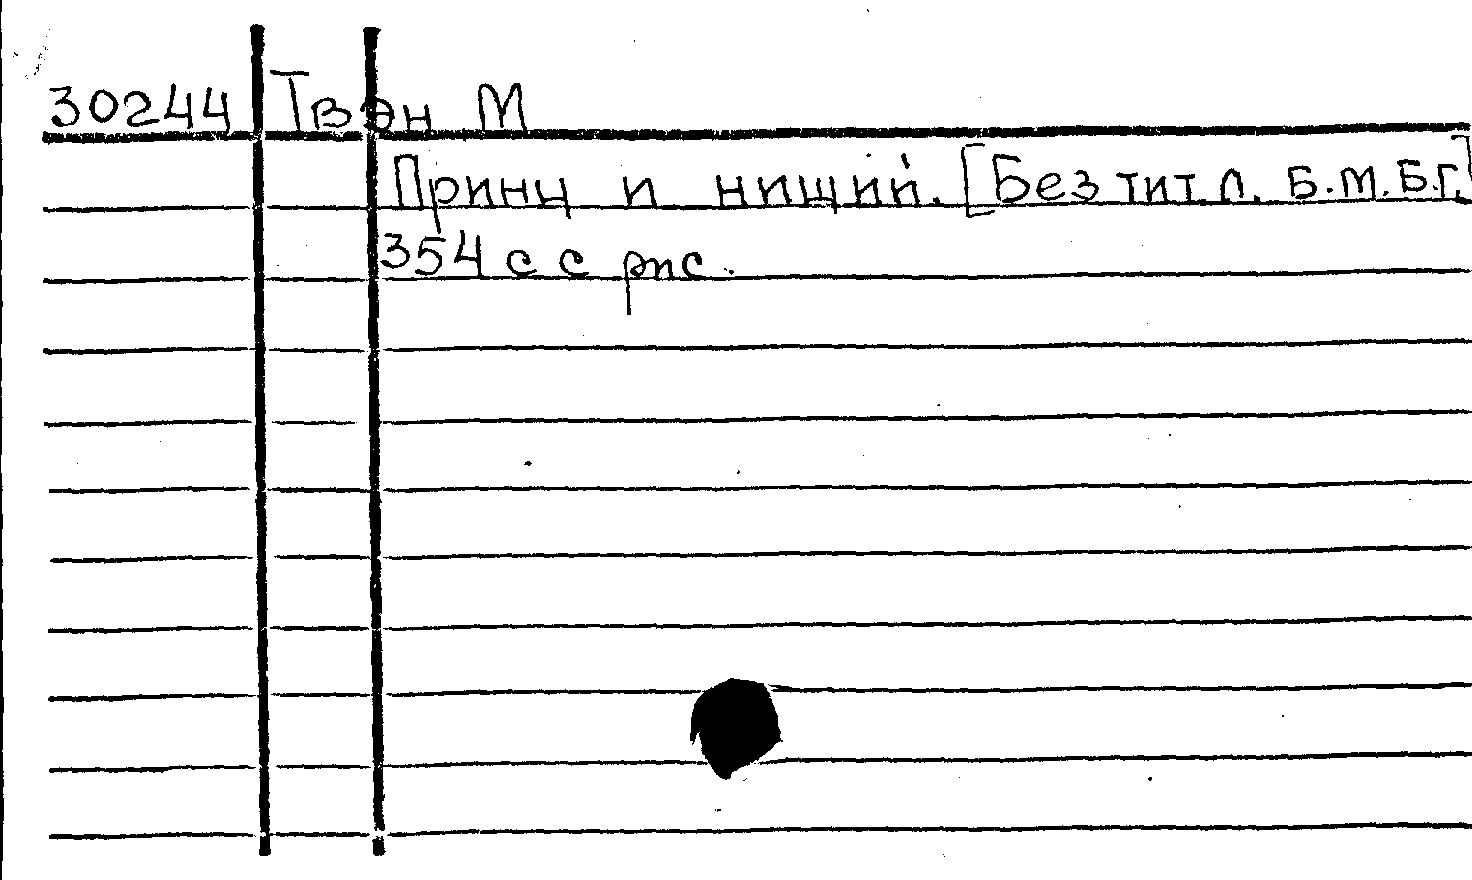 30244 Твэн М
Принц и нищий. [Без тит. л. Б.М.Б.Г.]
354 с с рис.